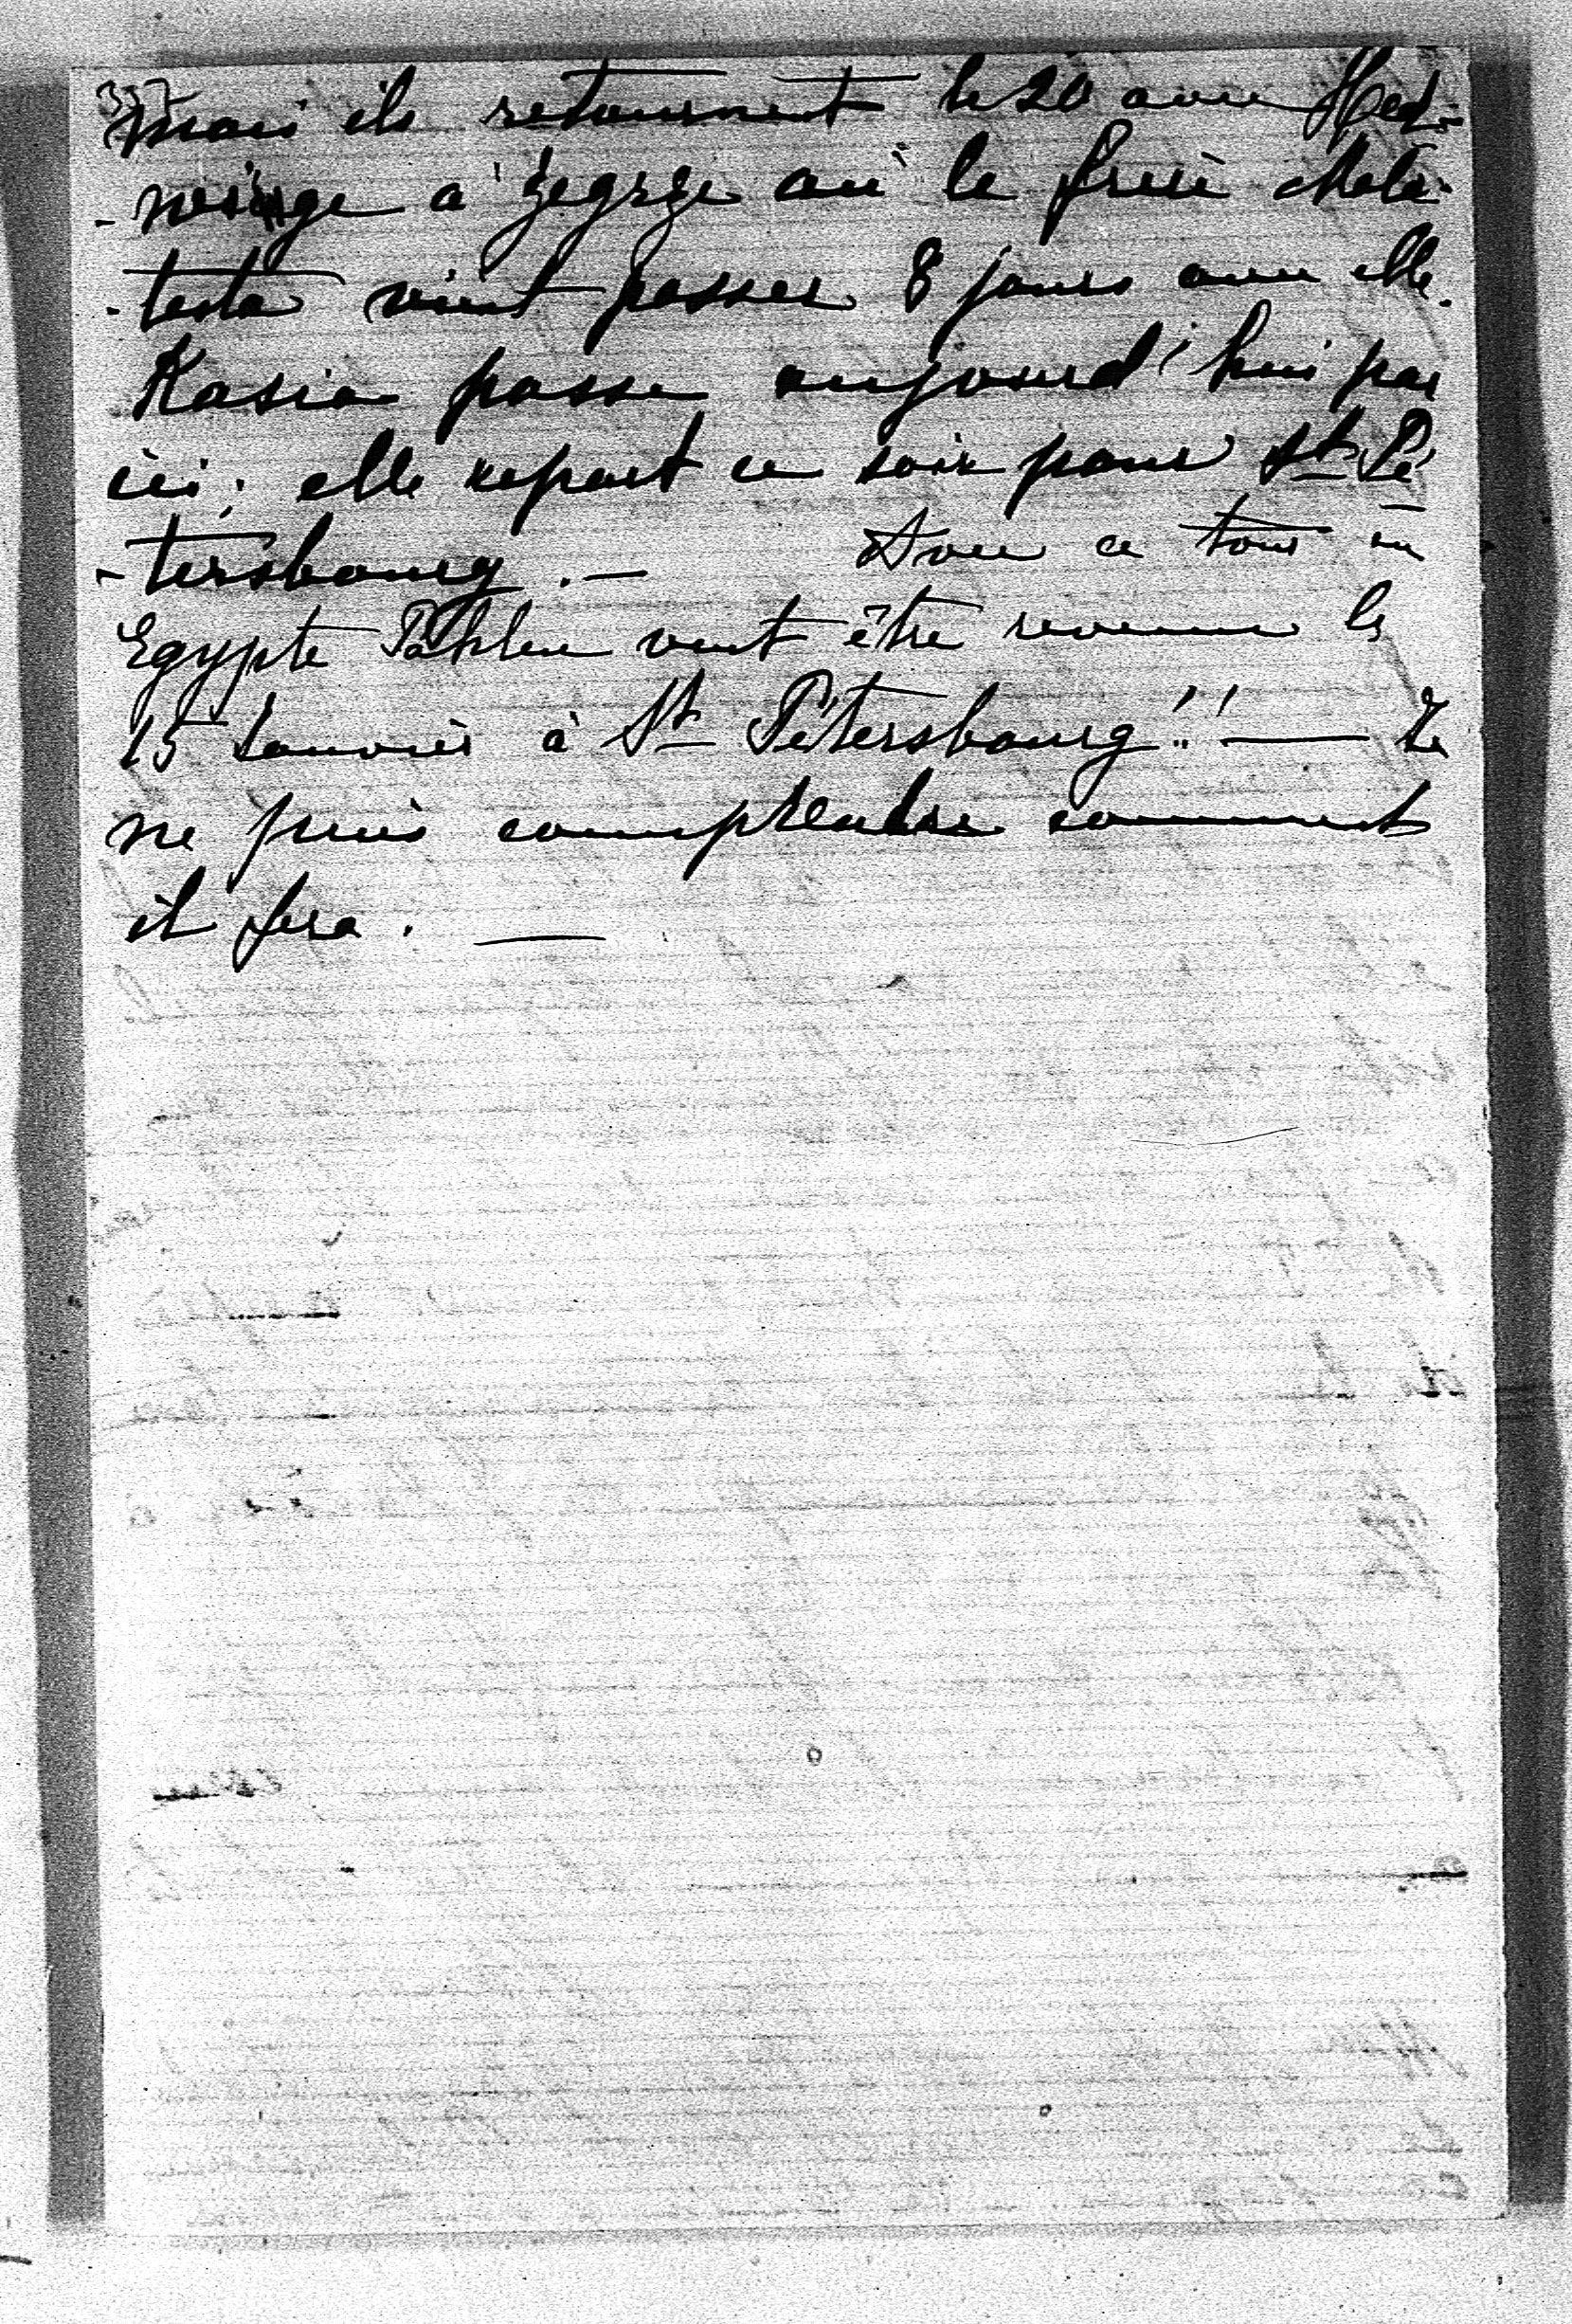 mais ils retournent le 20 avec Hed-
-wige à Zegrze où le frère Mala-
-testa vient passer 8 jours avec elle.
Kasia passe aujourd'hui par
ici; elle repart ce soir pour St Pé
-tersbourg. — Avec ce tour en
Egypte Pahlen veut être revenu le
15 Janvier à St Pétersbourg!! — Je
ne puis comprendre comment
il fera. —